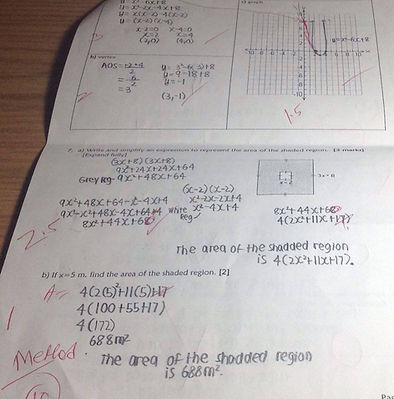 y = x²-6x+8
y = x²-2x-4x+8
y = x(x-2)-4(x-2)
y = (x-2)(x-4)
x-2=0 x-4=0
x=2 x=4
(2,0) (4,0)
c) graph
y=x²-6x+8
b) vertex
AOS = +2+4
2
= 6
2
= 3
y = 3²-6(3)+8
y = 9-18+8
y = -1
(3,-1)
1.5
7. a) Write and simplify an expression to represent the area of the shaded region. [3 marks]
[Expand fully]
(3x+8)(3x+8)
9x²+24x+24x+64
Grey Reg- 9x²+48x+64
3x+8
x-2
(x-2)(x-2)
x²-2x-2x+4
White Reg x²-4x+4
9x²+48x+64-x²-4x+4
9x²-x²+48x-4x+64+4
8x²+44x+68
2.5
8x²+44x+68
4(2x²+11x+17)
The area of the shadded region
is 4(2x²+11x+17).
b) If x=5 m, find the area of the shaded region. [2]
A= 4(2(5)²+11(5)+17
4(100+55+17)
4(172)
688m²
1
Method
The area of the shadded region
is 688m².
10